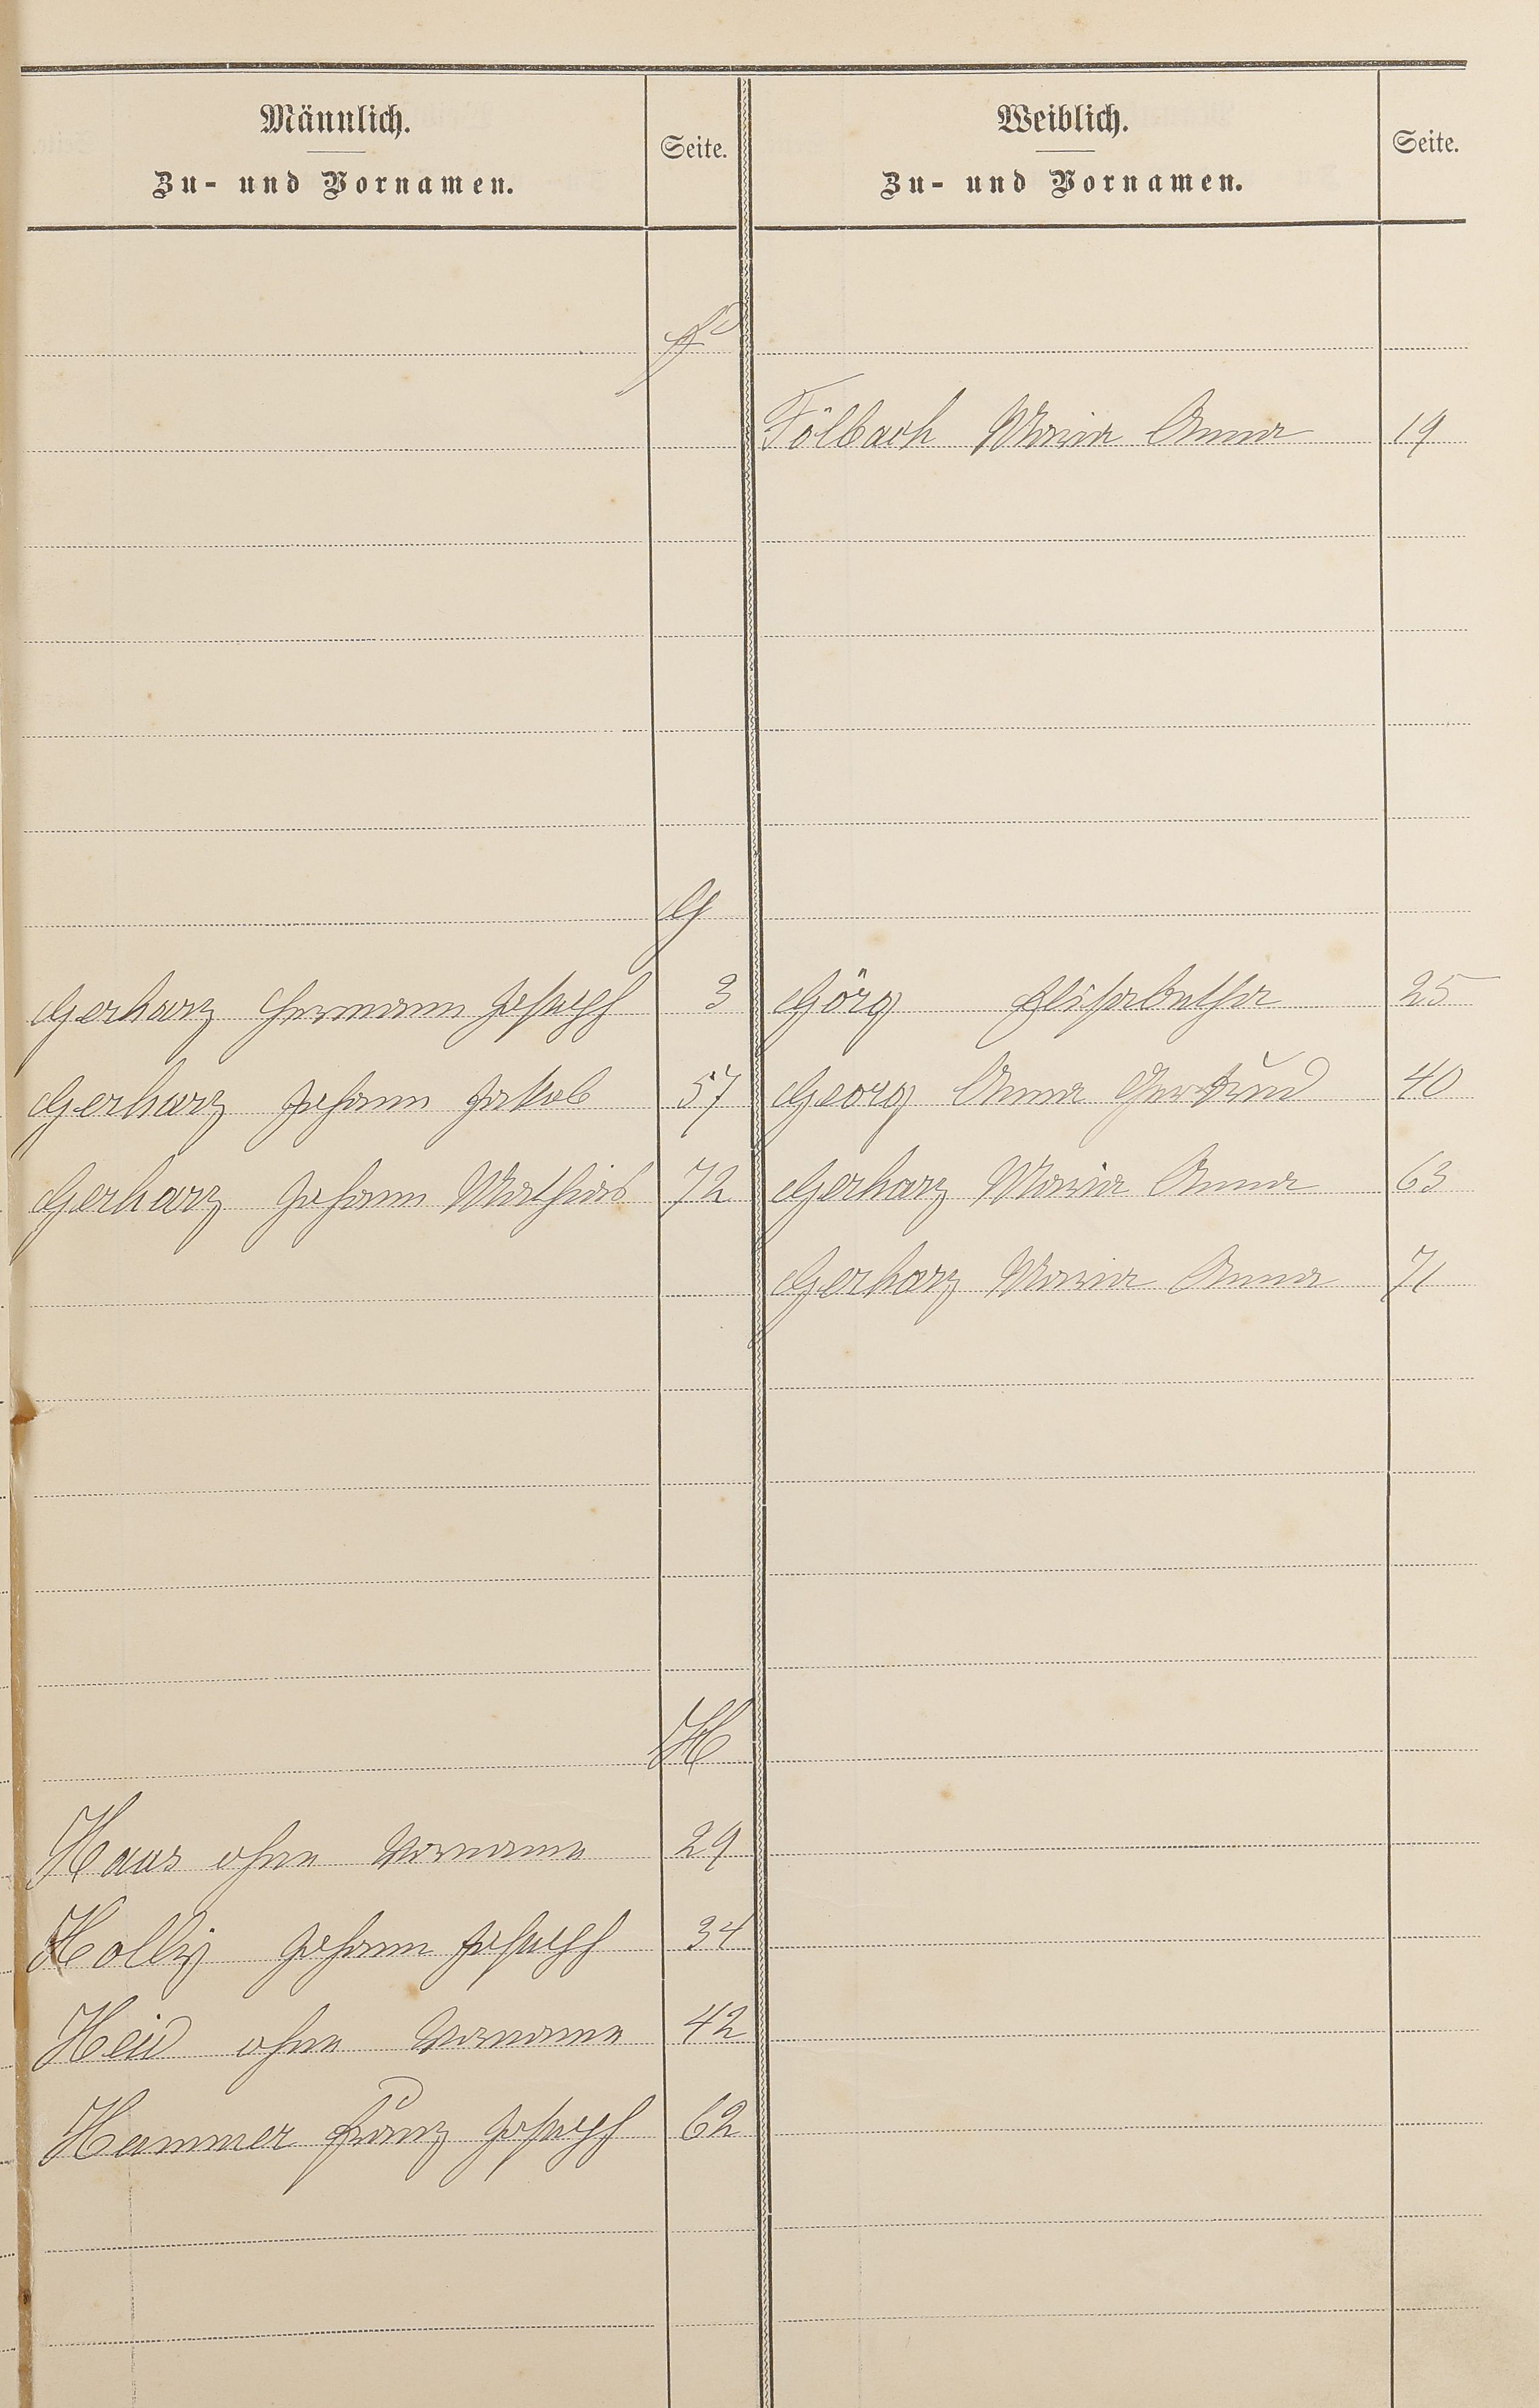 Männlich.
Zu- und Vornamen.
Seite.
Weiblich.
Zu- und Vornamen.
Seite.
F
Fölbach Maria Anna 19
G
Gerharz Hermann Joseph 3
Görg Elisabetha 25
Gerharz Johann Jakob 57
Georg Anna Gertrud 40
Gerharz Johann Mathias 72
Gerharz Maria Anna 63
Gerharz Maria Anna 71
H
Haas ohne Vorname 29
Holly Johann Joseph 34
Heid ohne Vorname 42
Hammer Franz Joseph 62